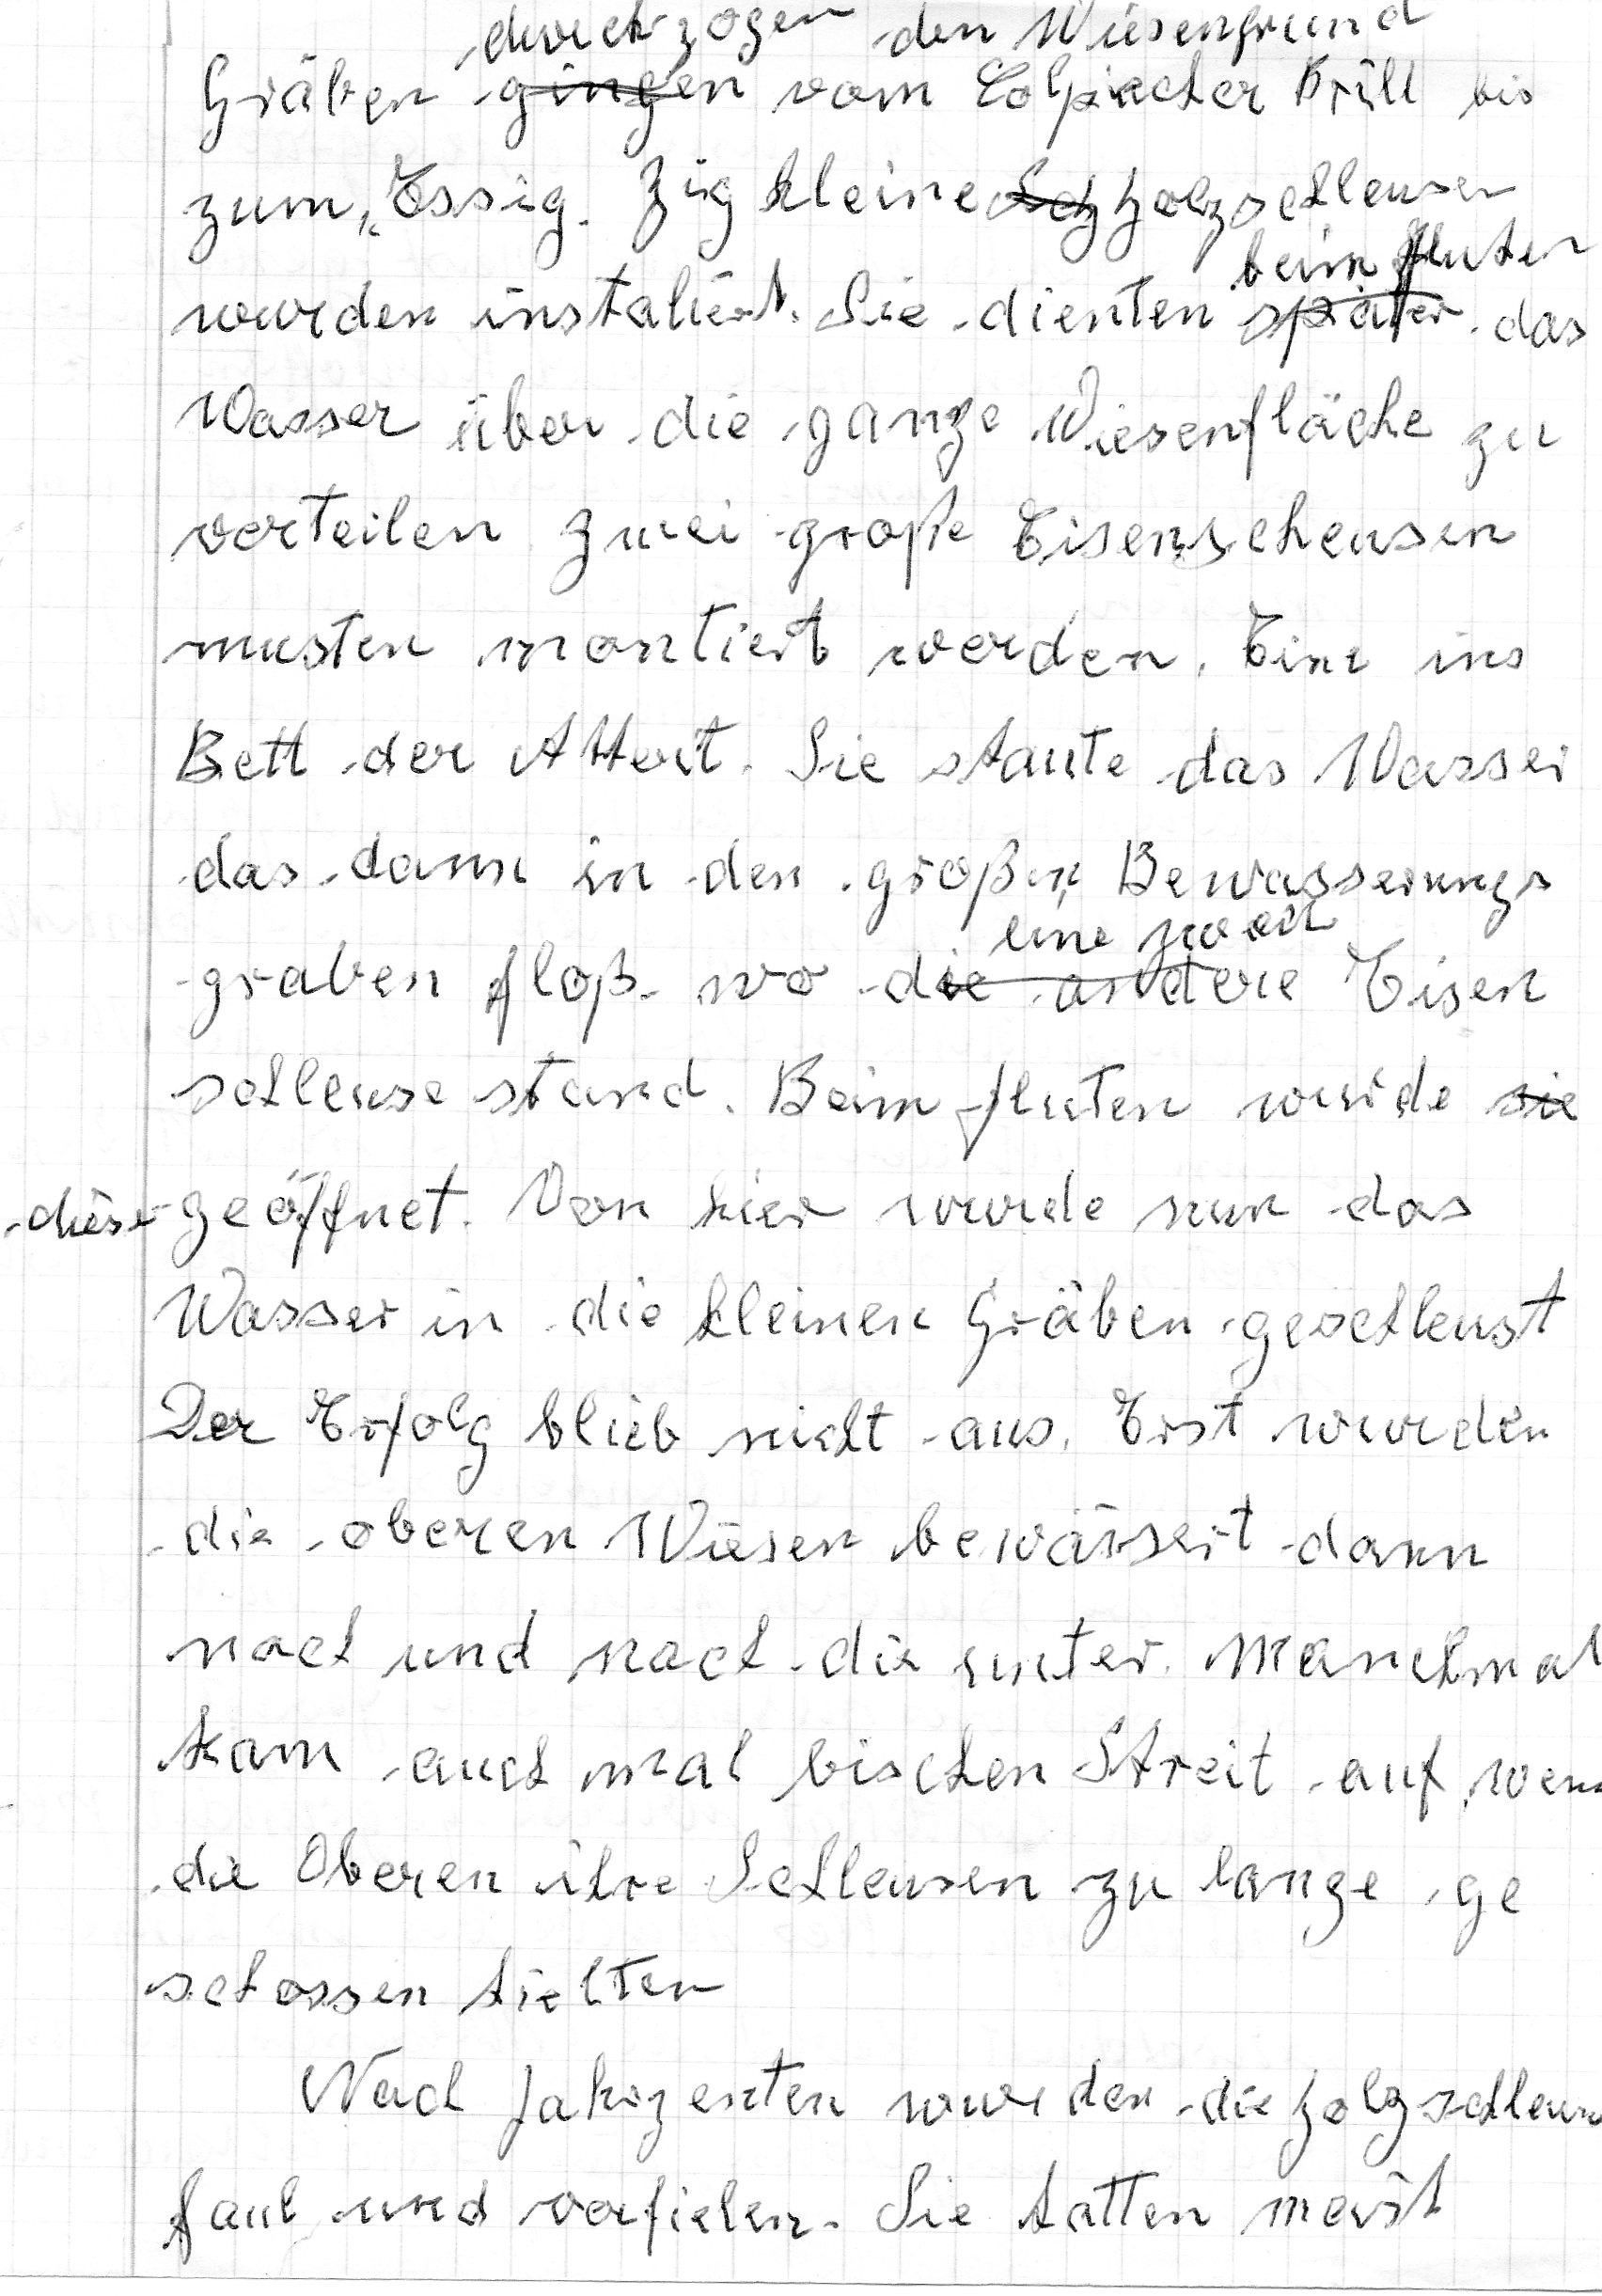 durchzogen den Wiesengrund
Gräben gingen vom Colpacher Brill bis
zum „Essig. Zig kleine Sch Holzschleusen
beim fluten
wurden instaliert. Sie dienten später das
Wasser über die ganze Wiesenfläche zu
verteilen Zwei große Eisenscheusen
musten montiert werden. Eine ins
Bett der Attert. Sie staute das Wasser
das dann in den großen Bewasserungs
eine zweite
graben floß wo die andere Eisen
schleuse stand. Beim fluten wurde sie
diese geöffnet. Von hier wurde nun das
Wasser in die kleinen Gräben geschleust
Der Erfolg blieb nicht aus. Erst wurden
die oberen Wiesen bewässert dann
nach und nach die unter. Manchmal
kam auch mal bischen Streit auf wenn
die Oberen ihre Schleusen zu lange ge
schossen hielten
Nach Jahrzenten wurden die Holzschleusen
faul und verfielen. Sie hatten meist